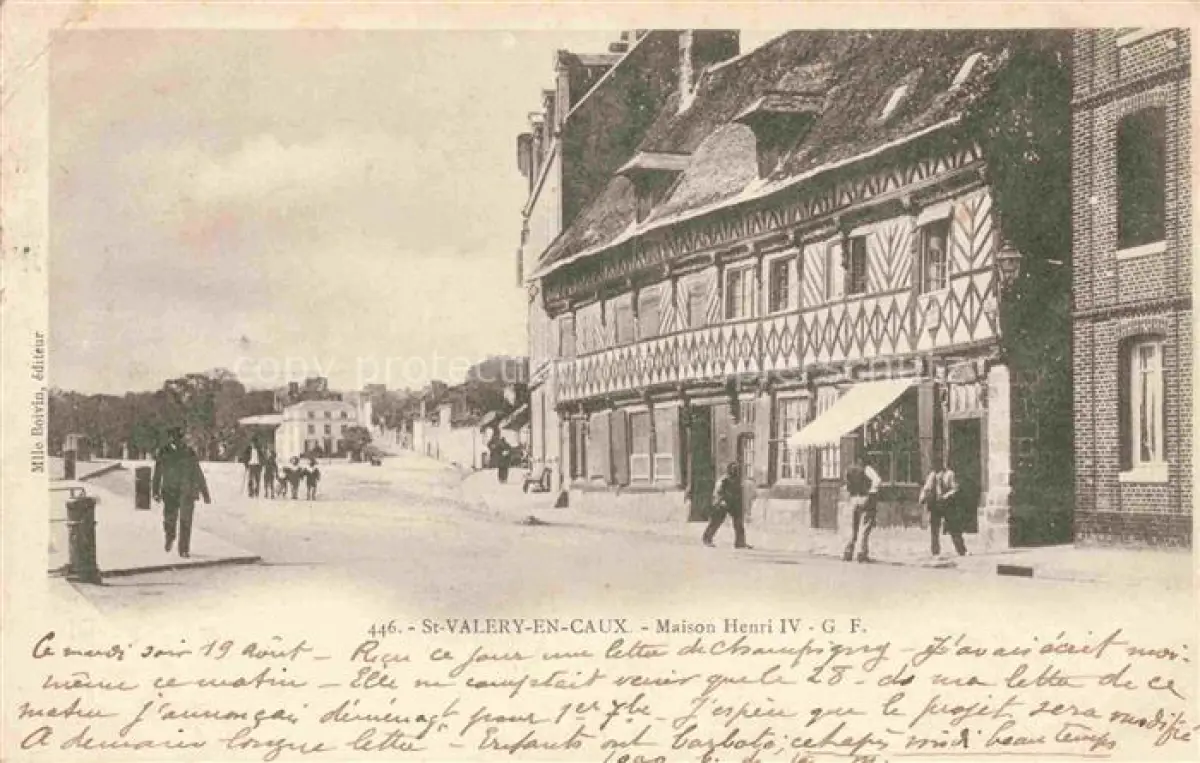 Mlle Boivin, éditeur
copy protection
446. - St-VALERY-EN-CAUX. - Maison Henri IV - G F.
Ce mardi soir 19 Août - Reçu ce jour une lettre de Champigny - J'avais écrit moi-
même ce matin - Elle ne comptait venir que le 28 - ds ma lettre de ce
matin j'annonçais déménagt pour 1er 7bre - J'espère que le projet sera modifié
A demain longue lettre - Enfants ont barboté; cet après midi beau temps